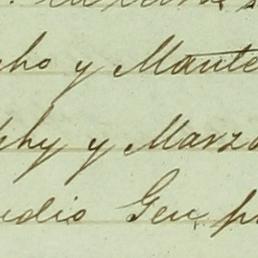 cho y Mante
phy y Marzo
udio Gen. p